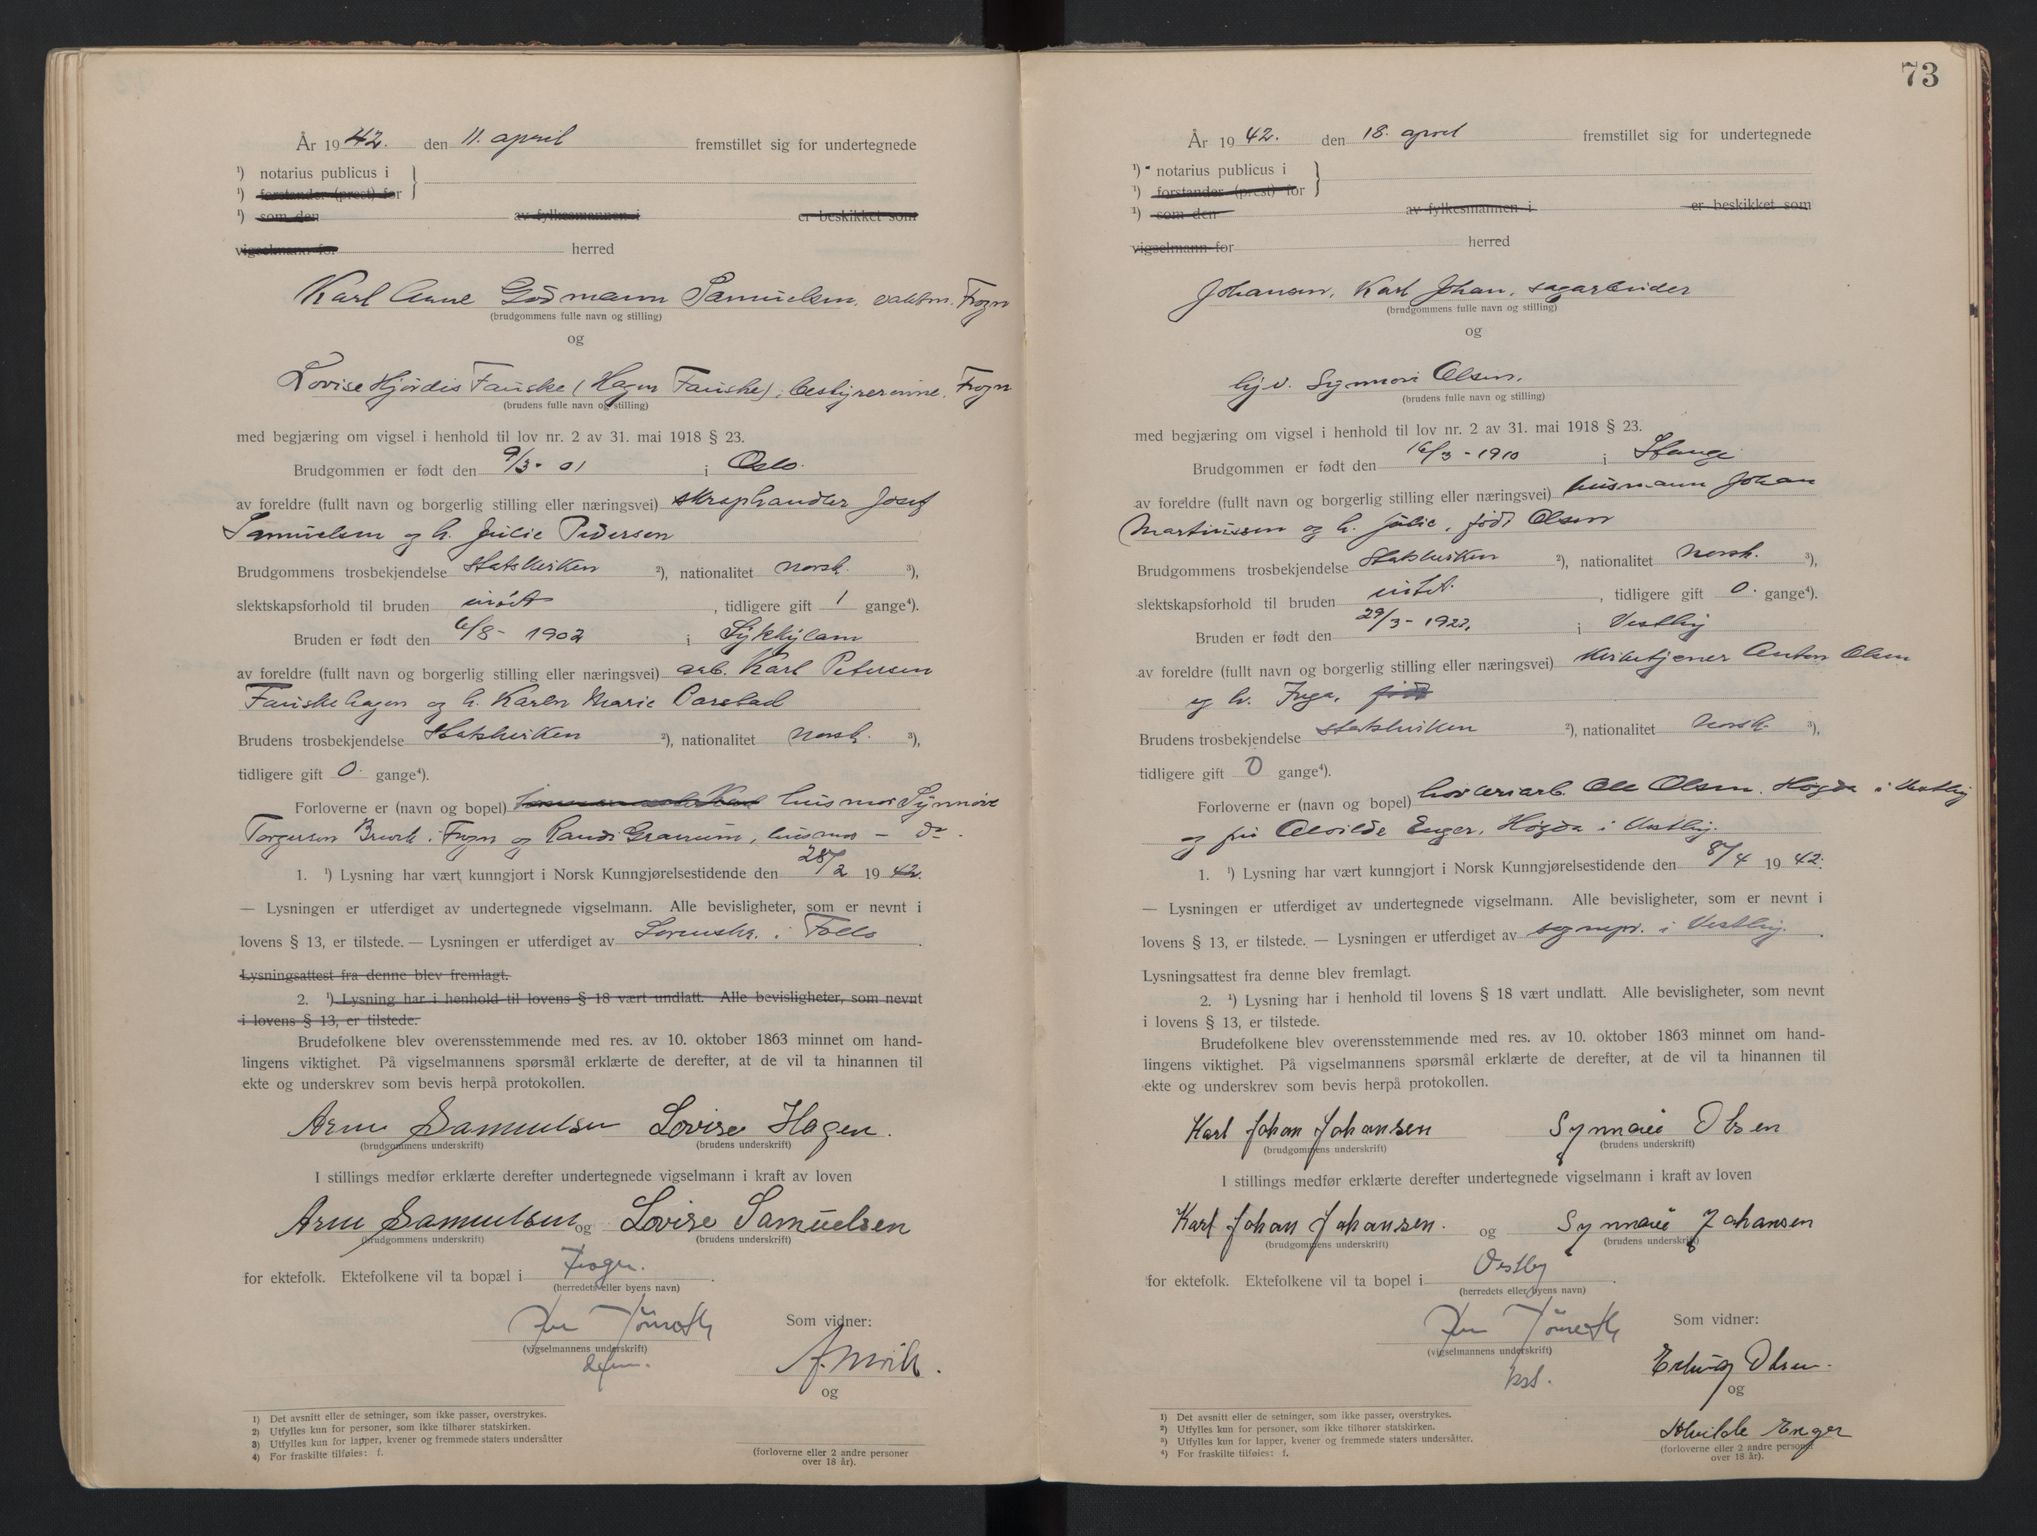 År 1942. den 11. april fremstillet sig for undertegnede
1) notarius publicus i
1) forstander (prest) for
1) som den av fylkesmannen i er beskikket som
vigselmann for herred
Karl Arne Godmann Samuelsen, Frogn
(brudgommens fulle navn og stilling)
og
Lovise Hjördis Fauske (Hagen Fauske), bestyrerinne. Frogn
(brudens fulle navn og stilling)
med begjæring om vigsel i henhold til lov nr. 2 av 31. mai 1918 § 23.
Brudgommen er født den 9/3- 01 i Oslo.
av foreldre (fullt navn og borgerlig stilling eller næringsvei) skraphandler Josef
Samuelsen og h. Julie Pedersen
Brudgommens trosbekjendelse Statskirken 2), nationalitet norsk. 3),
slektskapsforhold til bruden , tidligere gift 1 gange4).
Bruden er født den 6/8- 1902 i Sykkylven
av foreldre (fullt navn og borgerlig stilling eller næringsvei) arb. Karl Petersen
Fauskehagen og h. Karen Marie
Brudens trosbekjendelse Statskirken 2), nationalitet norsk. 3),
tidligere gift 0. gange4).
Forloverne er (navn og bopel) husmor Synnöve
Torgersen i Frogn og Randi Granum, husmor - do.
1. 1) Lysning har vært kunngjort i Norsk Kunngjørelsestidende den 28/2 1942.
— Lysningen er utferdiget av undertegnede vigselmann. Alle bevisligheter, som er nevnt i
lovens § 13, er tilstede. — Lysningen er utferdiget av Sorenskr. i Follo.
Lysningsattest fra denne blev fremlagt.
2. 1) Lysning har i henhold til lovens § 18 vært undlatt. Alle bevisligheter, som nevnt
i lovens § 13, er tilstede.
Brudefolkene blev overensstemmende med res. av 10. oktober 1863 minnet om hand-
lingens viktighet. På vigselmannens spørsmål erklærte de derefter, at de vil ta hinannen til
ekte og underskrev som bevis herpå protokollen.
Arne Samuelsen Lovise Hagen.
(brudgommens underskrift) (brudens underskrift)
I stillings medfør erklærte derefter undertegnede vigselmann i kraft av loven
Arne Samuelsen og Lovise Samuelsen
(brudgommens underskrift) (brudens underskrift)
for ektefolk. Ektefolkene vil ta bopæl i Frogn.
(herredets eller byens navn)
Som vidner:
(vigselmannens underskrift)
og
1) Det avsnitt eller de setninger, som ikke passer, overstrykes.
2) Utfylles kun for personer, som ikke tilhører statskirken.
3) Utfylles kun for lapper, kvener og fremmede staters undersåtter
4) For fraskilte tilføies: f.
(forloverne eller 2 andre personer
over 18 år).
73
År 1942. den 18. april fremstillet sig for undertegnede
1) notarius publicus i
1) forstander (prest) for
1) som den av fylkesmannen i er beskikket som
vigselmann for herred
Johansen, Karl Johan, sagarbeider
(brudgommens fulle navn og stilling)
og
Synnøve Olsen.
(brudens fulle navn og stilling)
med begjæring om vigsel i henhold til lov nr. 2 av 31. mai 1918 § 23.
Brudgommen er født den 16/3 - 1910 i Stange
av foreldre (fullt navn og borgerlig stilling eller næringsvei) husmann Johan
Martinussen og h. Julie, født Olsen
Brudgommens trosbekjendelse Statskirken 2), nationalitet norsk. 3),
slektskapsforhold til bruden intet. , tidligere gift 0. gange4).
Bruden er født den 29/3 - 1922. i Vestby
av foreldre (fullt navn og borgerlig stilling eller næringsvei) kirketjener Anton Olsen
og h. Inga, født
Brudens trosbekjendelse statskirken 2), nationalitet norsk. 3),
tidligere gift 0 gange4).
Forloverne er (navn og bopel) Ole Olsen, Høgda i Vestby
og fru Alvilde Enger, Høgda i Vestby.
1. 1) Lysning har vært kunngjort i Norsk Kunngjørelsestidende den 8/4 1942.
— Lysningen er utferdiget av undertegnede vigselmann. Alle bevisligheter, som er nevnt i
lovens § 13, er tilstede. — Lysningen er utferdiget av sognepr. i Vestby.
Lysningsattest fra denne blev fremlagt.
2. 1) Lysning har i henhold til lovens § 18 vært undlatt. Alle bevisligheter, som nevnt
i lovens § 13, er tilstede.
Brudefolkene blev overensstemmende med res. av 10. oktober 1863 minnet om hand-
lingens viktighet. På vigselmannens spørsmål erklærte de derefter, at de vil ta hinannen til
ekte og underskrev som bevis herpå protokollen.
Karl Johan Johansen Synnøve Olsen
(brudgommens underskrift) (brudens underskrift)
I stillings medfør erklærte derefter undertegnede vigselmann i kraft av loven
Karl Johan Johansen. og Synnøve Johansen
(brudgommens underskrift) (brudens underskrift)
for ektefolk. Ektefolkene vil ta bopel i Vestby
(herredets eller byens navn)
Som vidner:
(vigselmannens underskrift)
Olsen.
og
Alvilde Enger
1) Det avsnitt eller de setninger, som ikke passer, overstrykes.
2) Utfylles kun for personer, som ikke tilhører statskirken.
3) Utfylles kun for lapper, kvener og fremmede staters undersåtter.
4) For fraskilte tilføies: f.
(forloverne eller 2 andre personer
over 18 år).